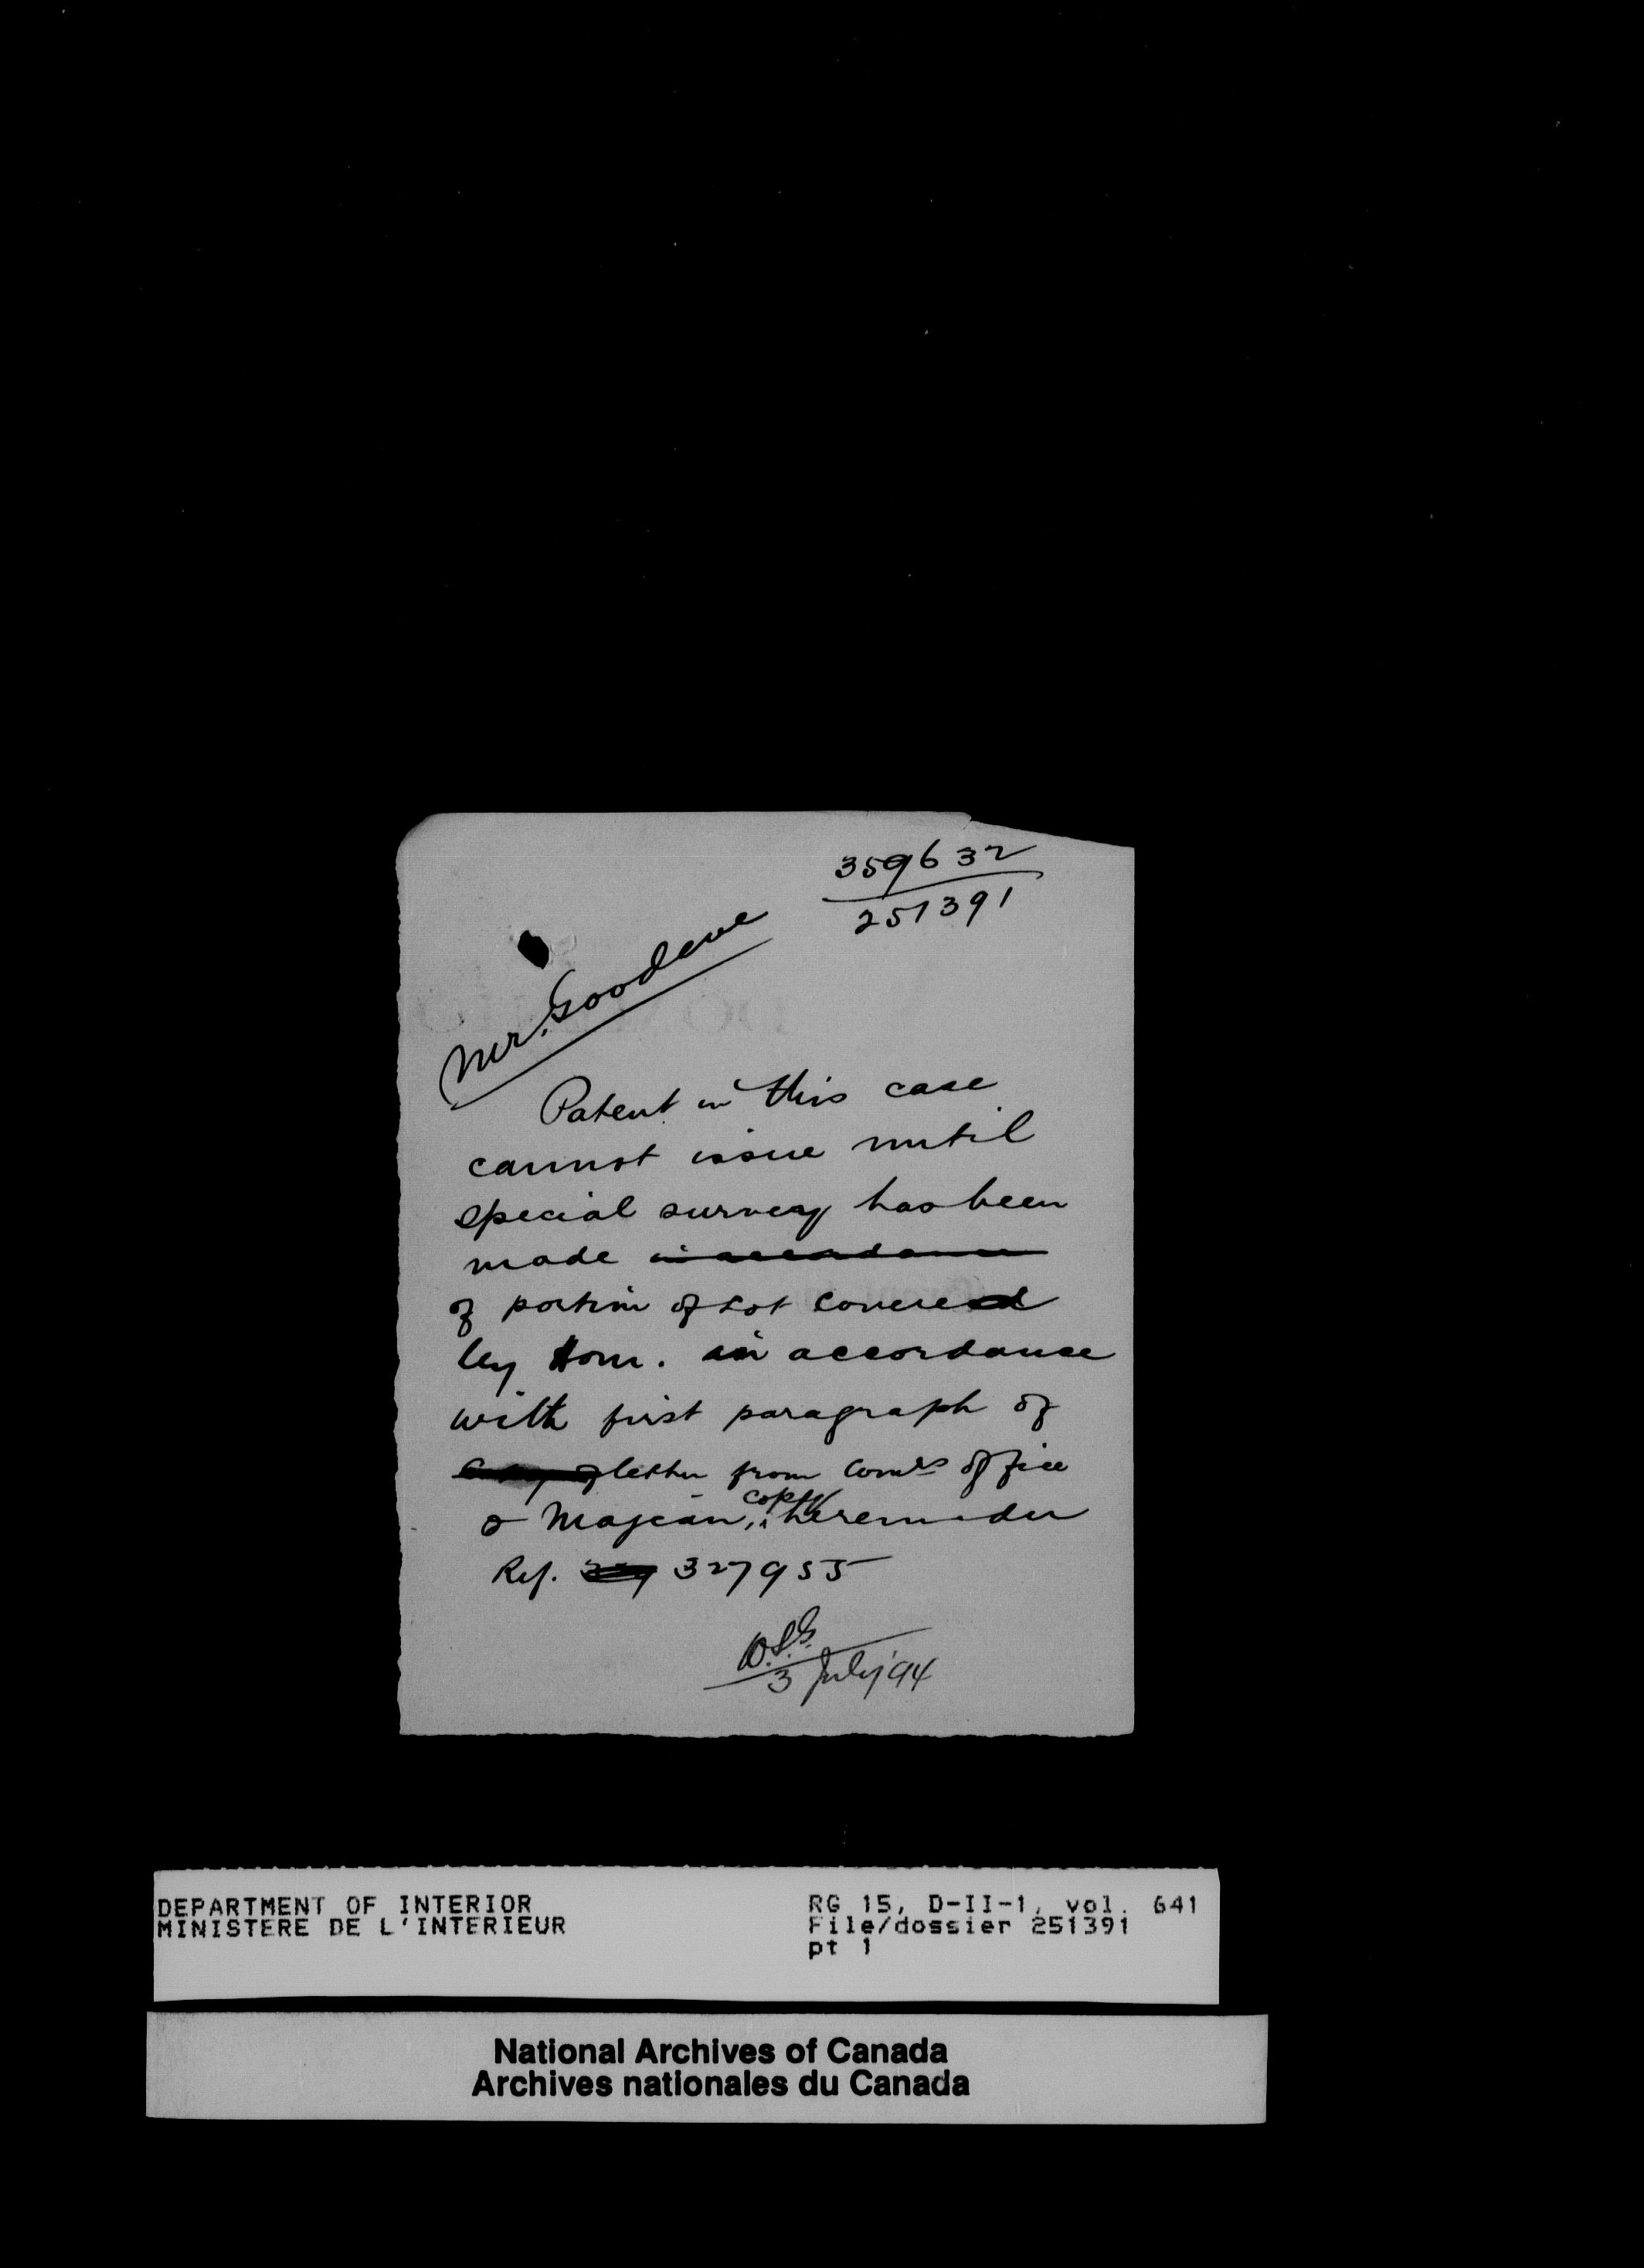 359632
251391
Mr. Goodeve
Patent in this case
cannot issue until
special survey has been
made in accordance
of portion of Lot covered
by Hom. in accordance
with first paragraph of
copy of letter from Comrs office
to Majean, copy hereunder
Ref. 327955
3 July '94
DEPARTMENT OF INTERIOR
MINISTERE DE L'INTERIEUR
RG 15, D-II-1, vol. 641
File/dossier 251391
pt 1
National Archives of Canada
Archives nationales du Canada